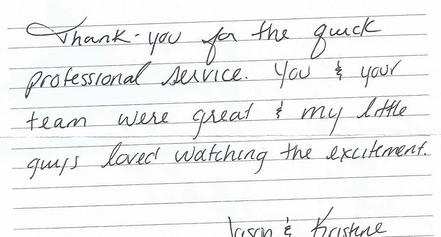 Thank-you for the quick
professional service. You & your
team were great & my little
guys loved watching the excitement.
Jason & Kristine